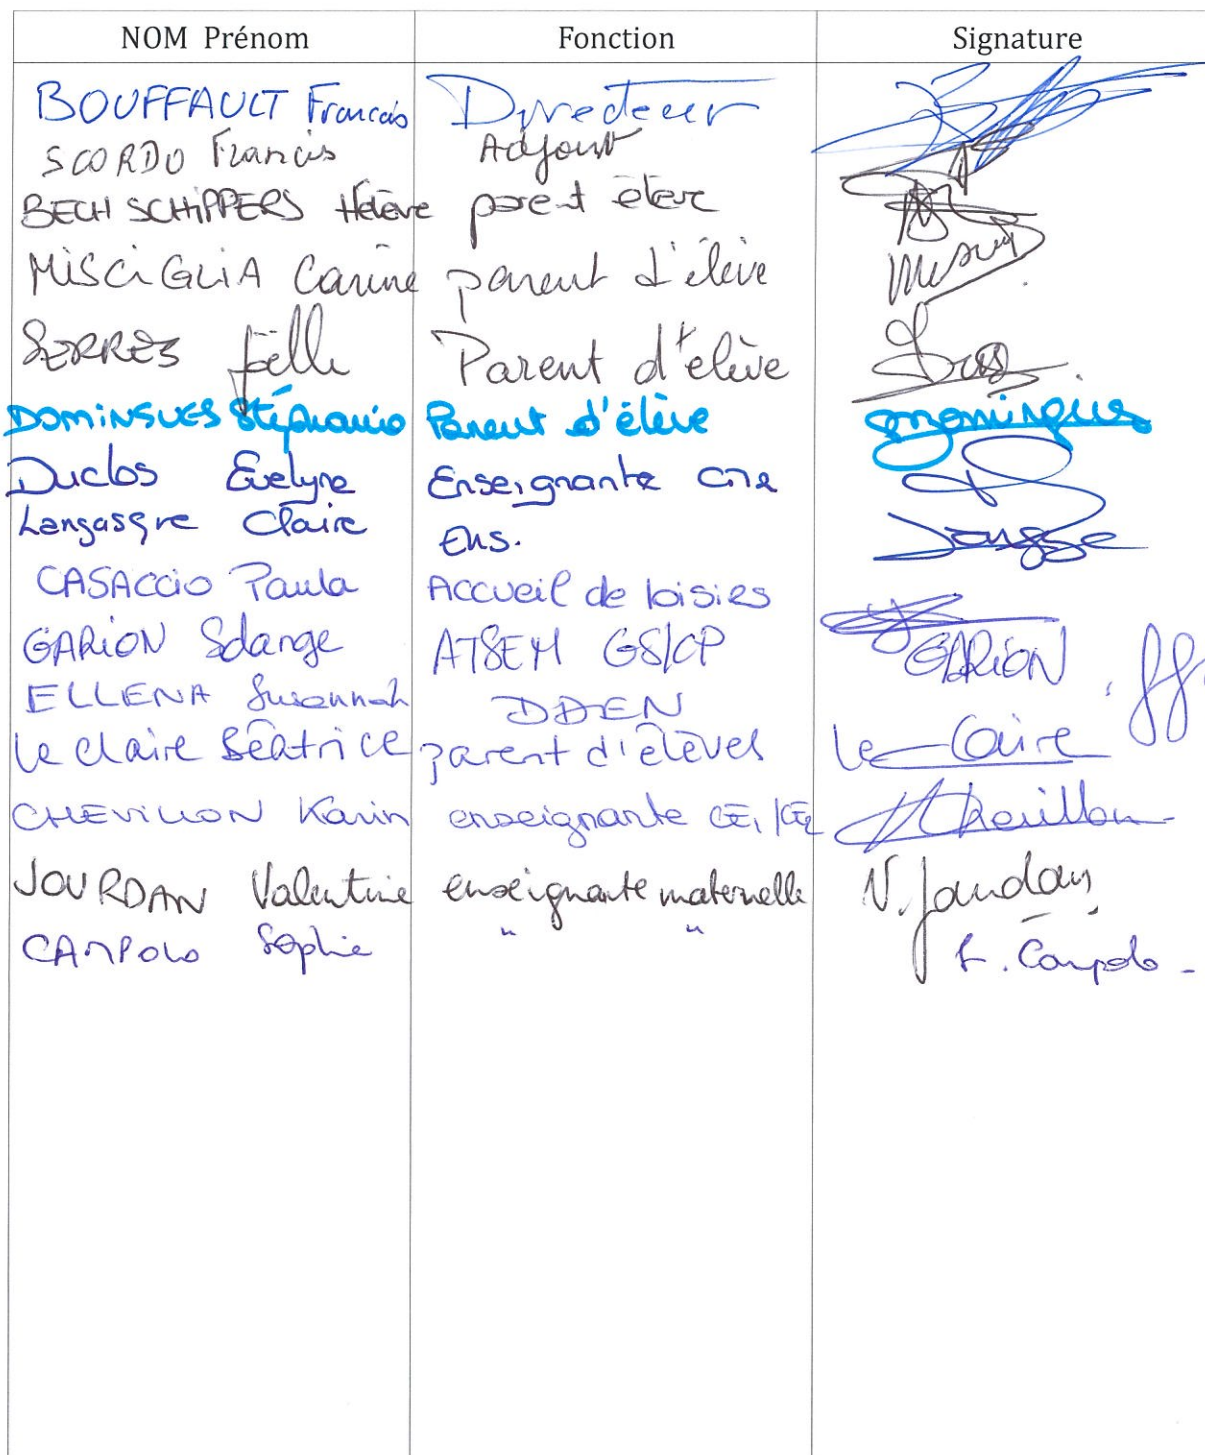 NOM Prénom Fonction Signature
BOUFFAULT Francois Directeur
SCORDO Francis Adjoint
BECH SCHIPPERS Hélène parent élève
MISCIGLIA Carine parent d'élève
SERRES Joëlle Parent d'élève
DOMINGUES Stéphanie Parent d'élève Domingues
Duclos Evelyne Enseignante CM2
Langasque Claire Ens.
CASACCIO Paula Accueil de loisirs
GARION Solange ATSEM GS/CP GARION
ELLENA Susannah DDEN
Le Claire Béatrice parent d'élèves Le Claire
CHEVILLON Karin enseignante CE1/CE2 Chevillon
JOURDAN Valentine enseignante maternelle V. Jourdan
CAMPOLO Sophie " " S. Campolo